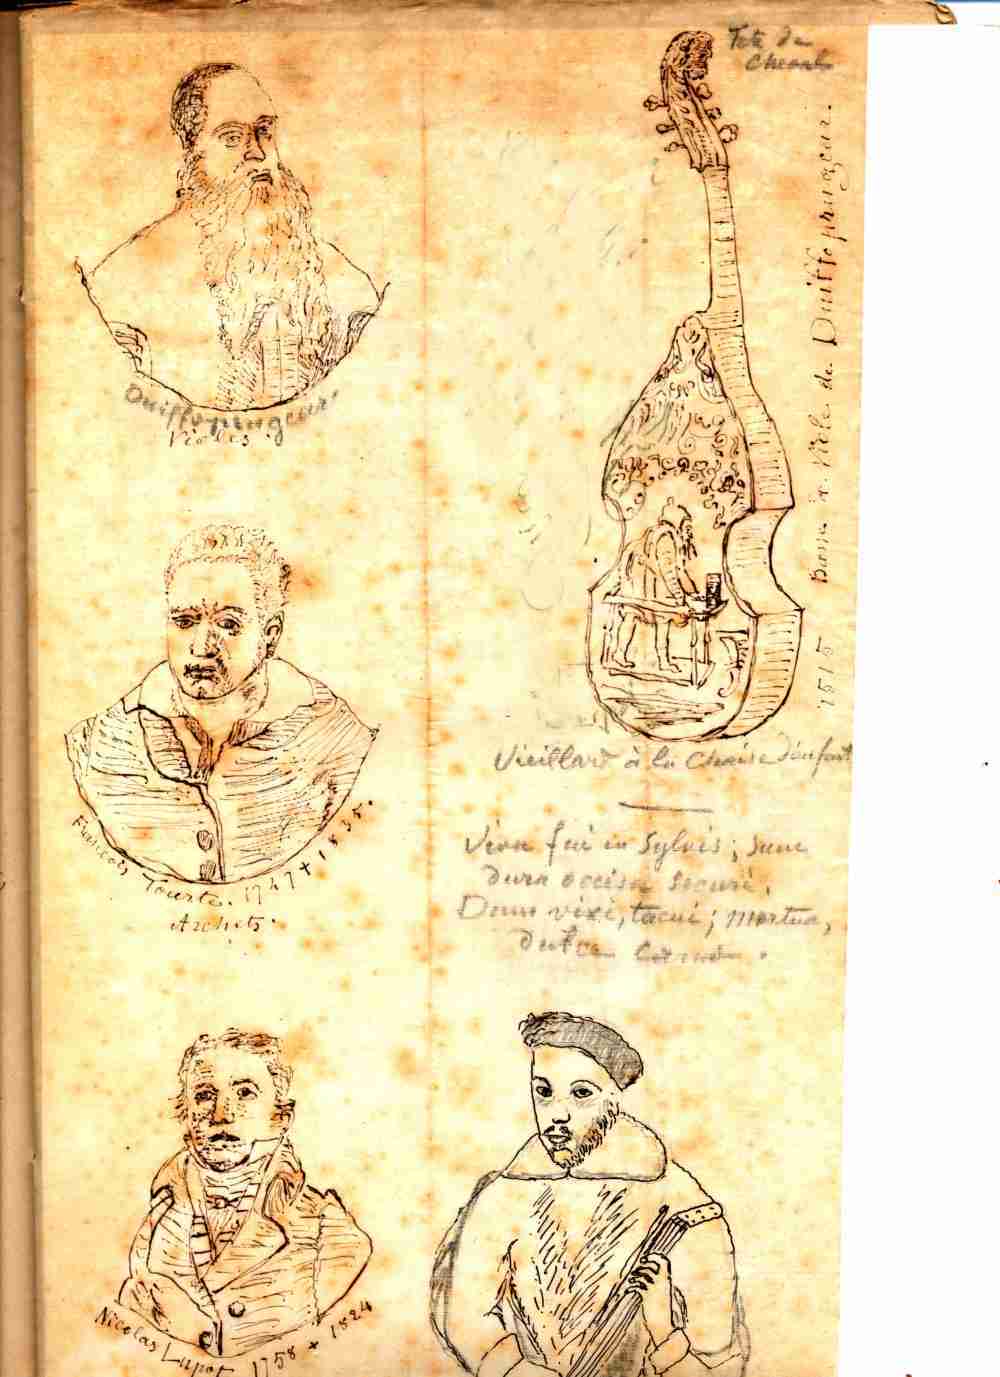 Tete de
Cheval
Duiffoprugcar.
Violes.
1515 Basse de Viole de Duiffoprugcar.
François Tourte. 1747 + 1835.
Archets.
Vieillard à la Chaise d'enfant
Viva fui in Sylvis; sum
dura occisa securi.
Dum vixi, tacui; mortua,
dulce cano.
Nicolas Lupot 1758 + 1824